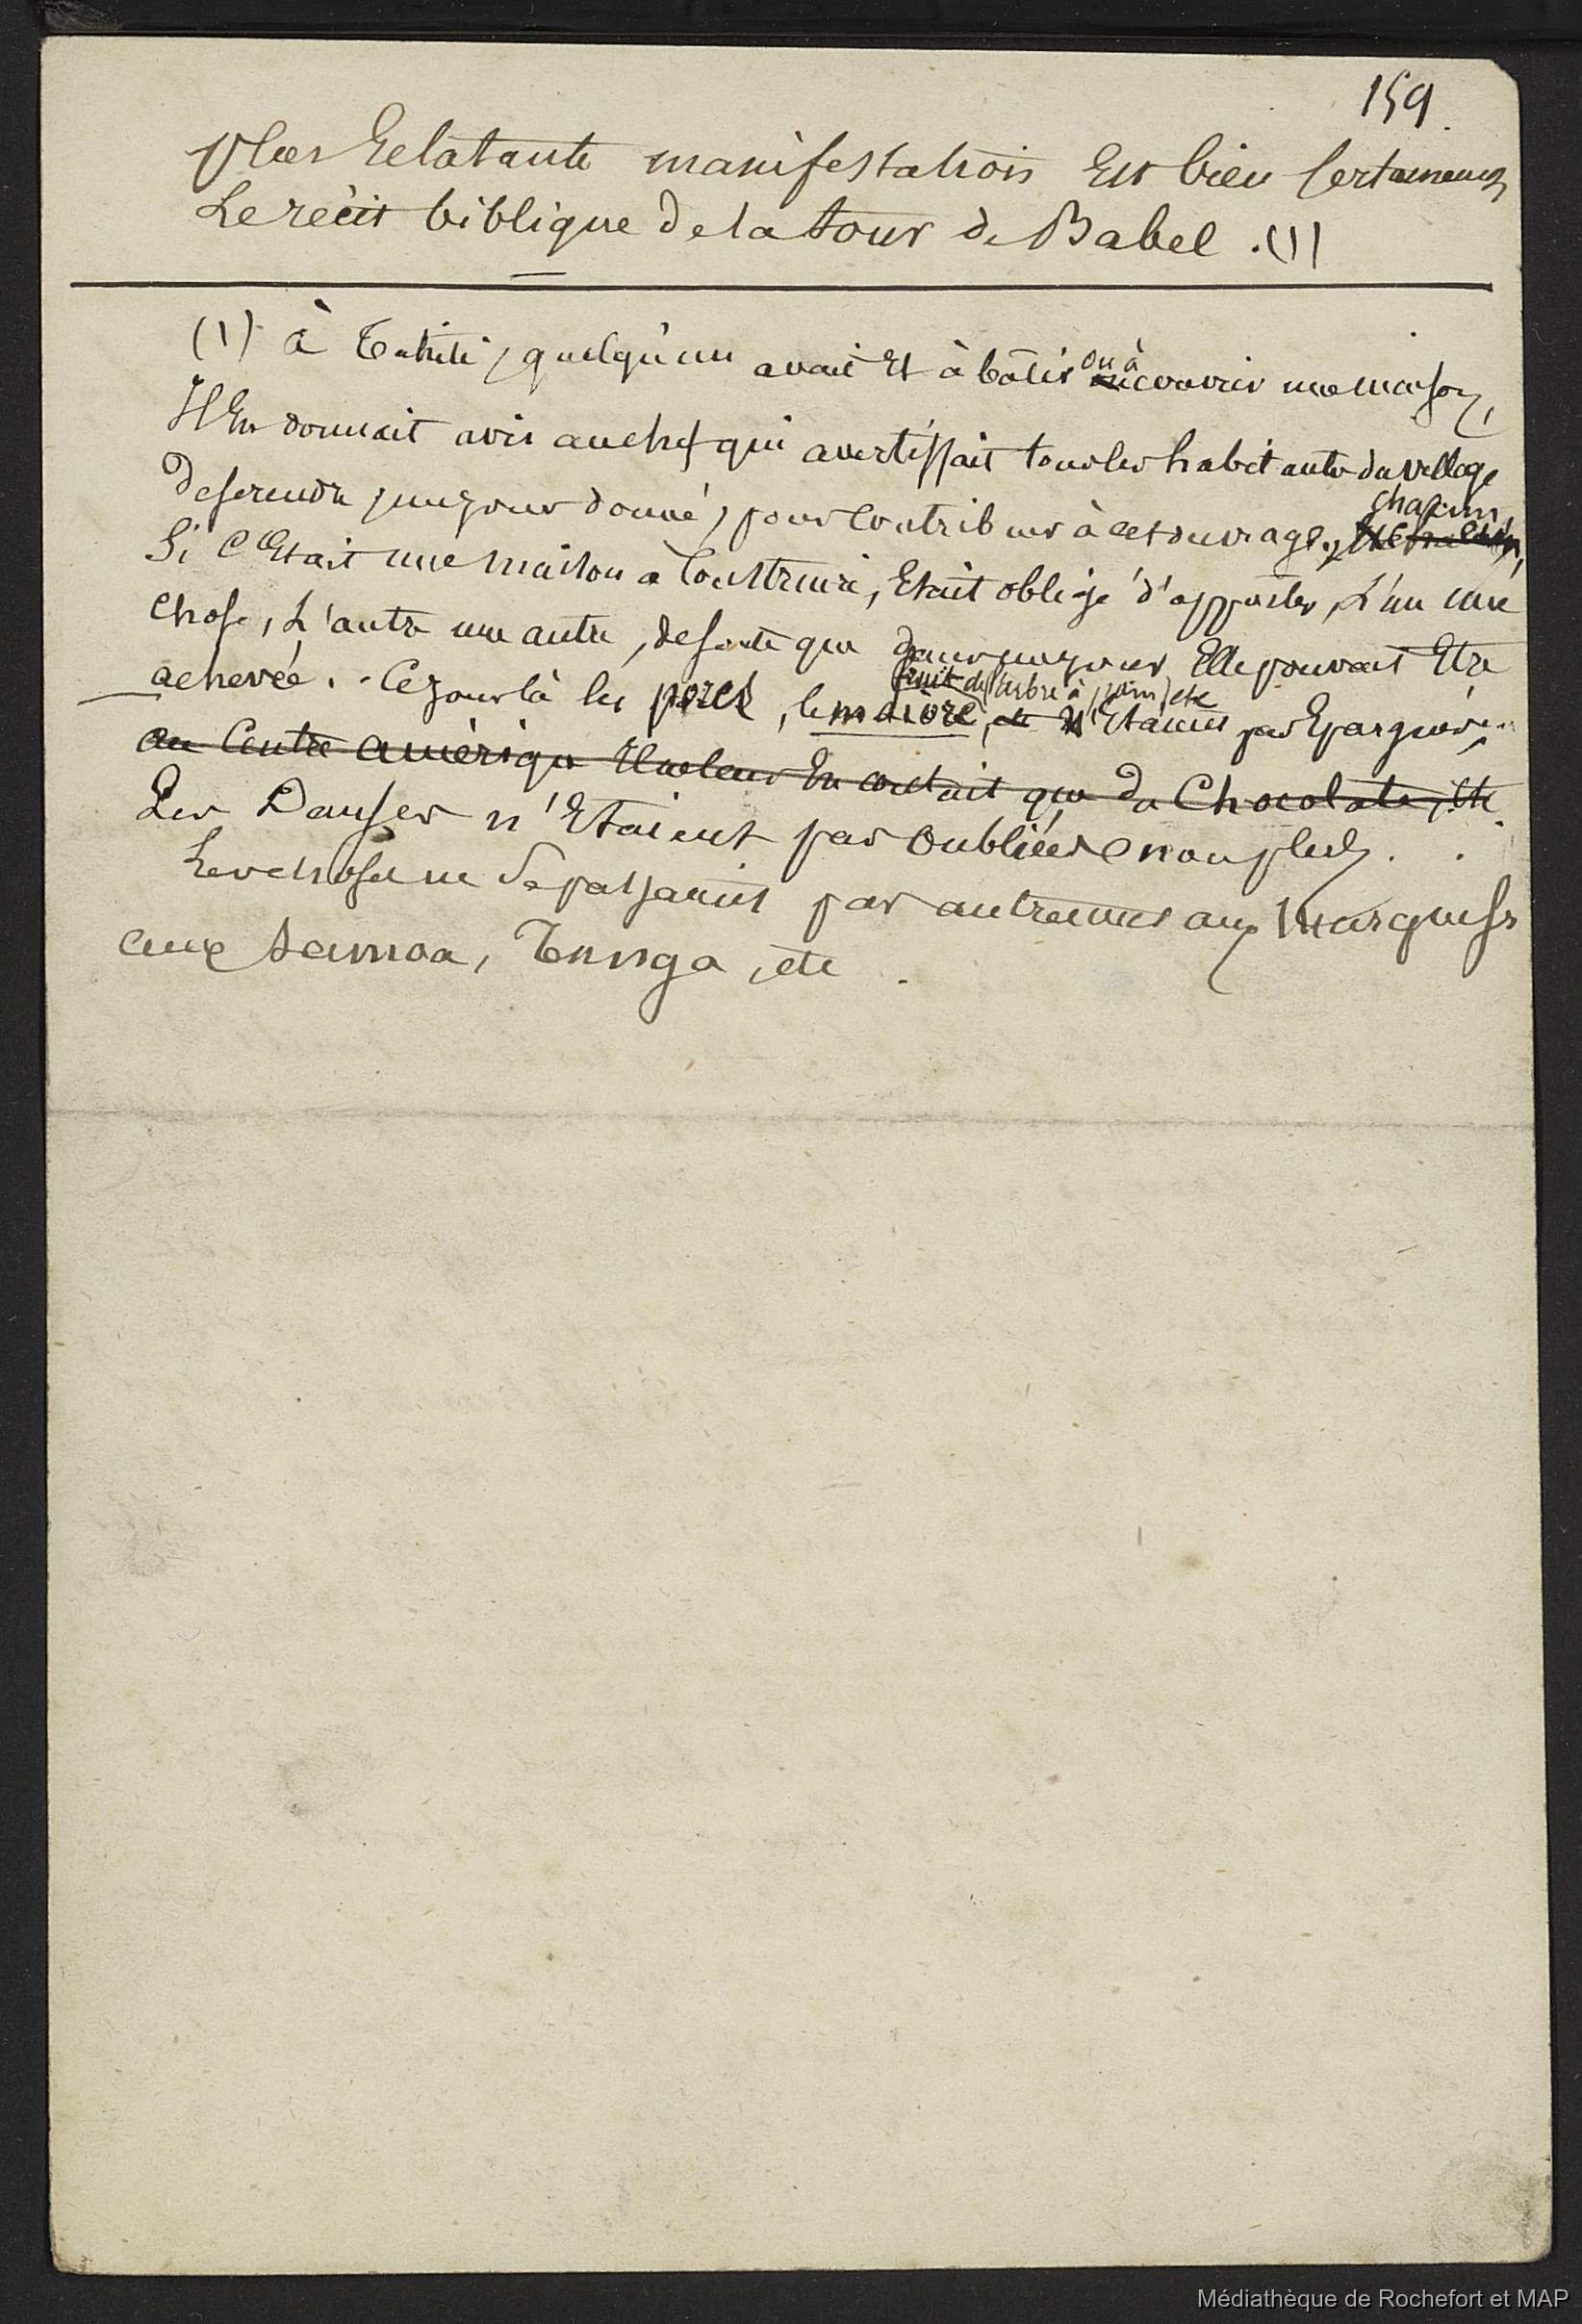 159.
plus Eclatante manifestation Est bien Certainement
Le récit biblique de la tour de Babel .(1)
(1) à Tahiti, quelqu'un avait Et à bâtir ou à couvrir une maison,
Il En donnait avis au chef qui avertissait tous les habitants du village
de se rendre, un jour donné, pour Contribuer à cet ouvrage, chacun,
Si C'Etait une maison à Construire, Etait obligé d'apporter, L'un une
chose, L'autre une autre, de sorte que dans un jour Elle pouvait Etre
achevée. Ce jour là les porcs, le maiore, fruit de l'arbre à pain, etc N'Etaient pas Epargnés.
au Centre amérique Il ne leur En coutait que du Chocolate, etc.
Les Danses n'Etaient pas oubliées non plus.
Les choses ne Se passaient pas autrement aux Marquises
aux Samoa, Tonga, etc.
Médiathèque de Rochefort et MAP